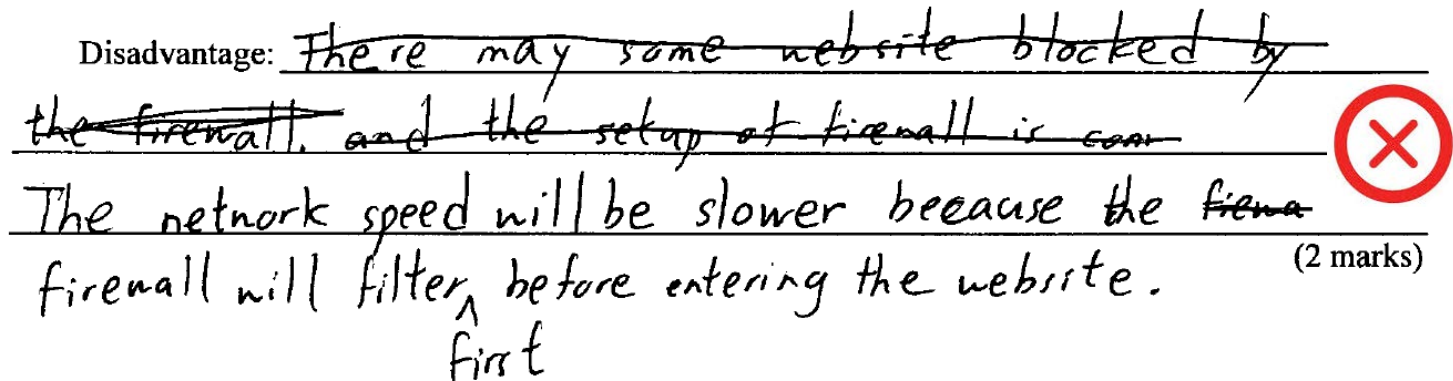 Disadvantage: There may some website blocked by
the firewall. and the setup of firewall is com
The network speed will be slower because the fiewa
(2 marks)
firewall will filter first before entering the website.